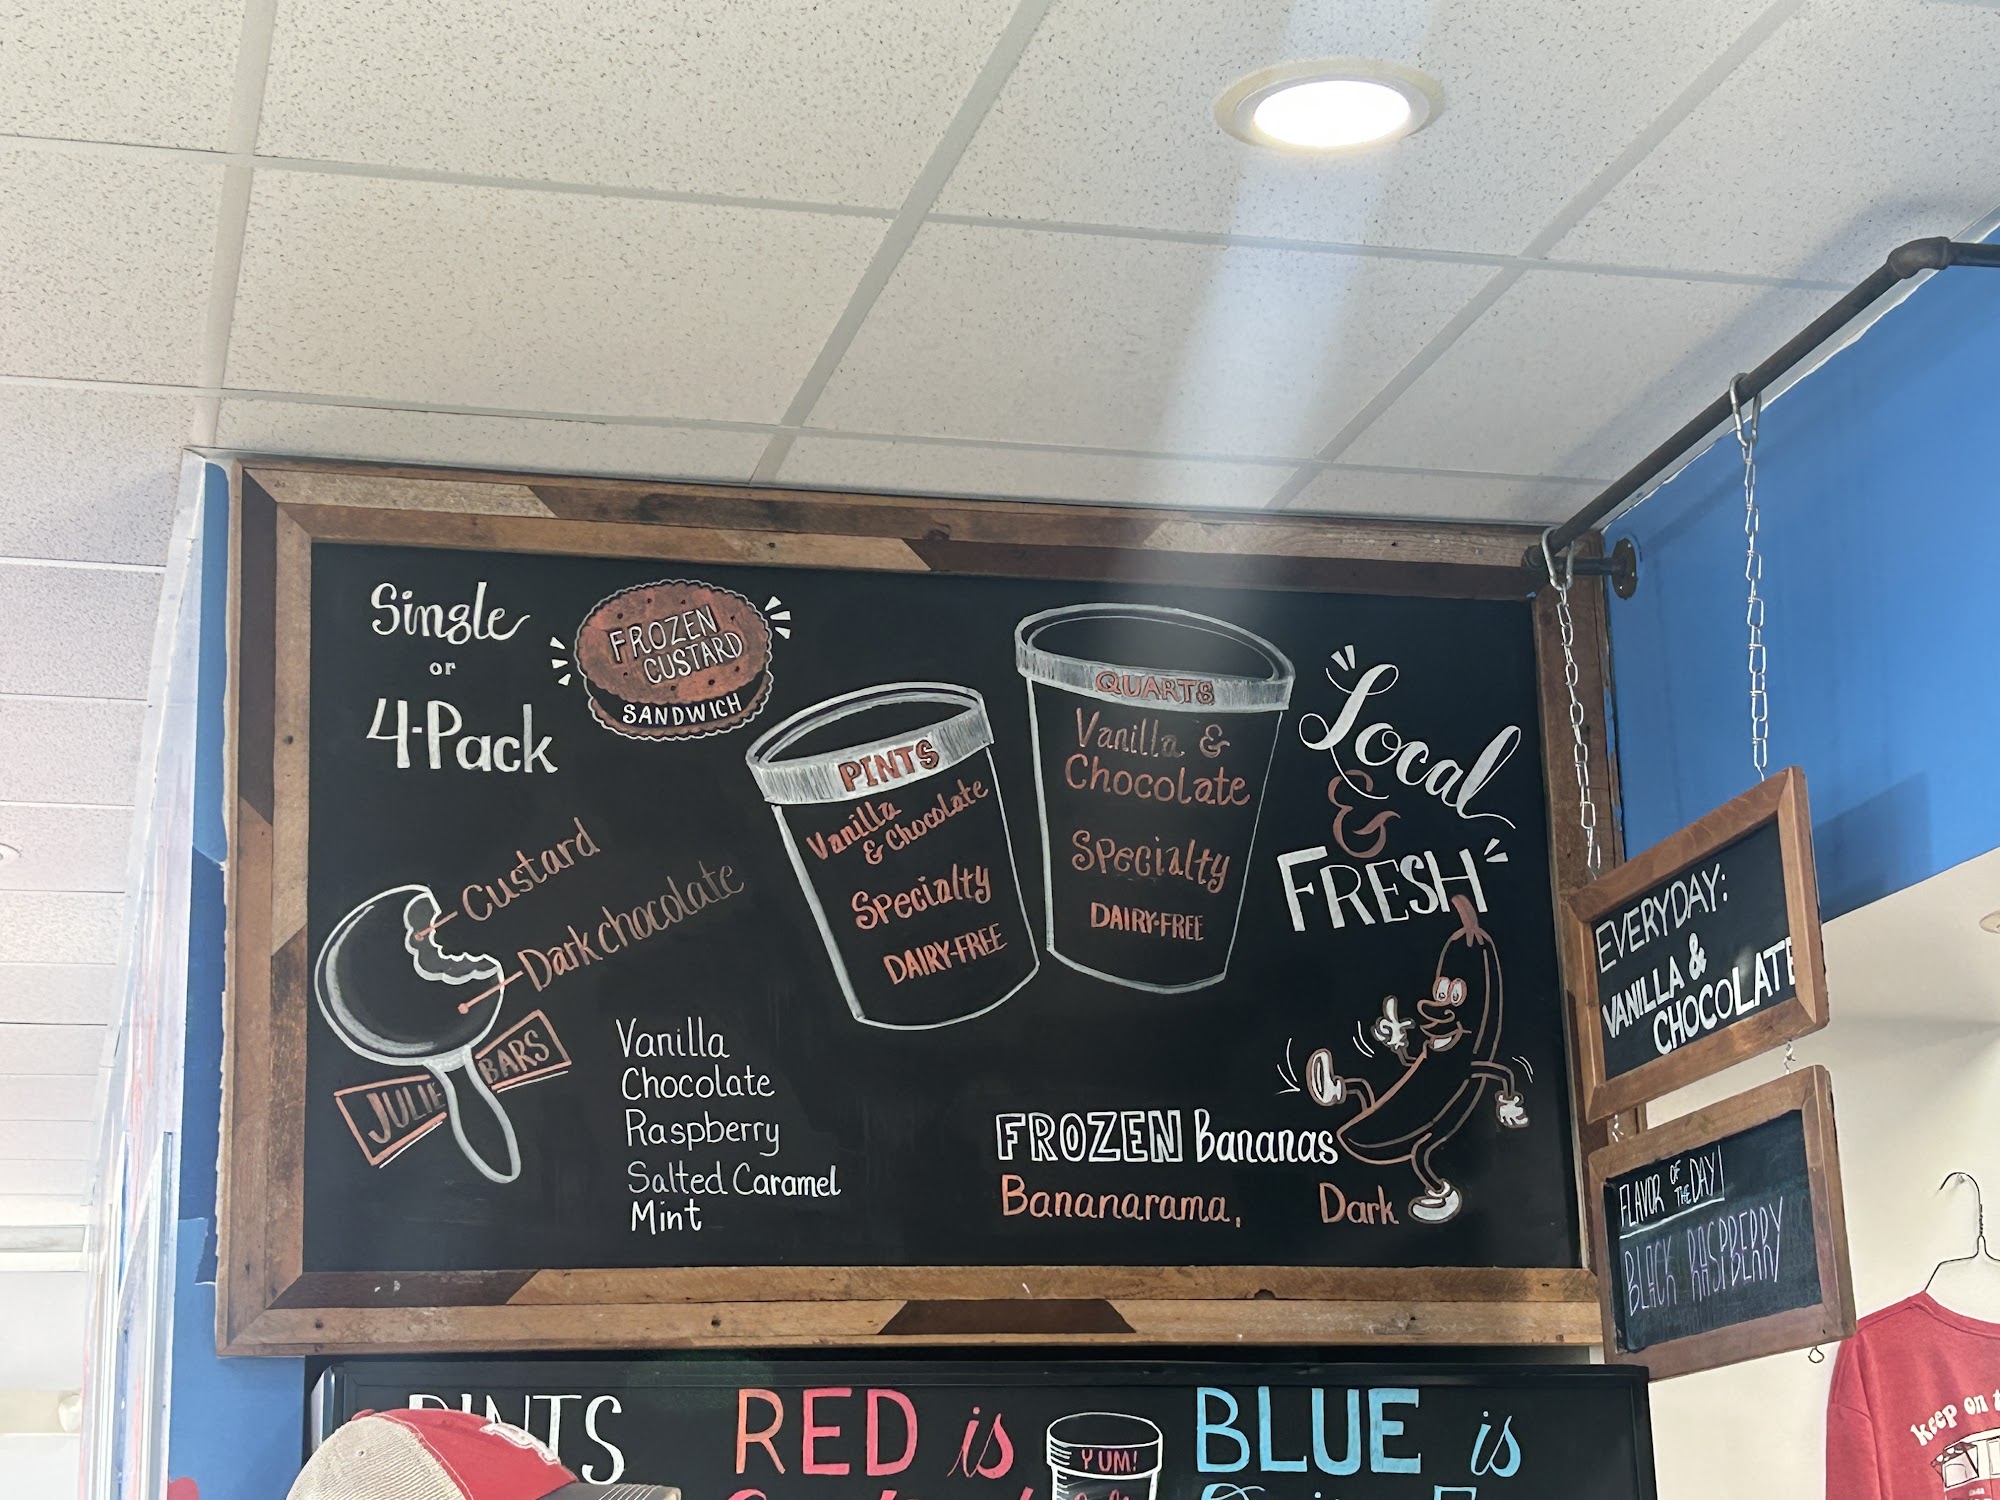 Single
or
4-Pack
FROZEN
CUSTARD
SANDWICH
Custard
Dark chocolate
JULIE BARS
Vanilla
Chocolate
Raspberry
Salted Caramel
Mint
PINTS
Vanilla
& Chocolate
Specialty
DAIRY-FREE
QUARTS
Vanilla &
Chocolate
Specialty
DAIRY-FREE
Local
&
FRESH
FROZEN Bananas
Bananarama, Dark
EVERYDAY:
VANILLA &
CHOCOLATE
FLAVOR OF THE DAY!
BLACK RASPBERRY
PINTS
RED is
YUM!
BLUE is
keep on